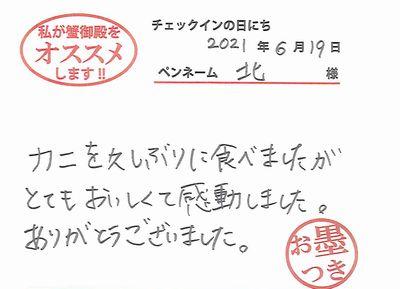 私が蟹御殿を
オススメ
します!!
チェックインの日にち
2021年6月19日
ペンネーム 北 様
カニを久しぶりに食べましたが
とてもおいしくて感動しました。
ありがとうございました。
お墨
つき